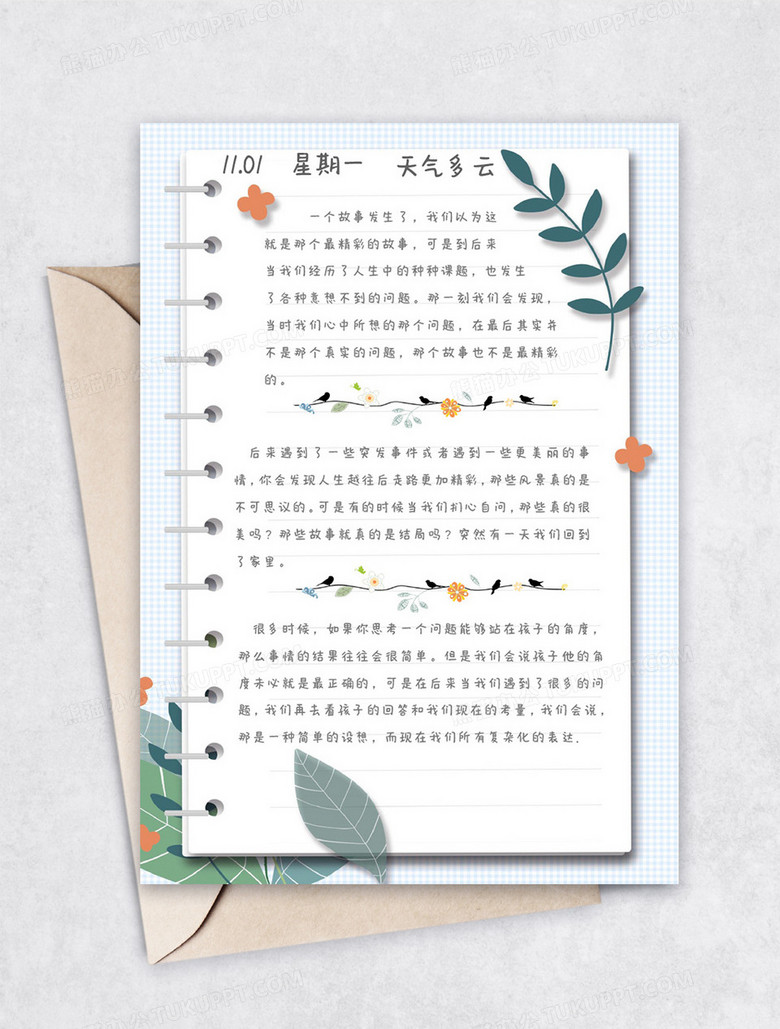 11.01 星期一 天气多云
一个故事发生了，我们以为这
就是那个最精彩的故事，可是到后来
当我们经历了人生中的种种课题，也发生
了各种意想不到的问题。那一刻我们会发现，
当时我们心中所想的那个问题，在最后其实并
不是那个真实的问题，那个故事也不是最精彩
的。
后来遇到了一些突发事件或者遇到一些更美丽的事
情，你会发现人生越往后走路更加精彩，那些风景真的是
不可思议的。可是有的时候当我们扪心自问，那些真的很
美吗？那些故事就真的是结局吗？突然有一天我们回到
了家里。
很多时候，如果你思考一个问题能够站在孩子的角度，
那么事情的结果往往会很简单。但是我们会说孩子他的角
度未必就是最正确的，可是在后来当我们遇到了很多的问
题，我们再去看孩子的回答和我们现在的考量，我们会说，
那是一种简单的设想，而现在我们所有复杂化的表达.